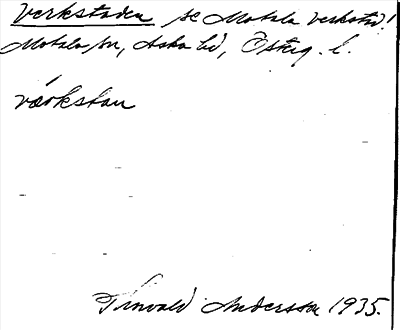 Verkstaden se Motala verkstad!
Motala sn, Aska hd, Österg. l.
värkstan
Andersson 1935.